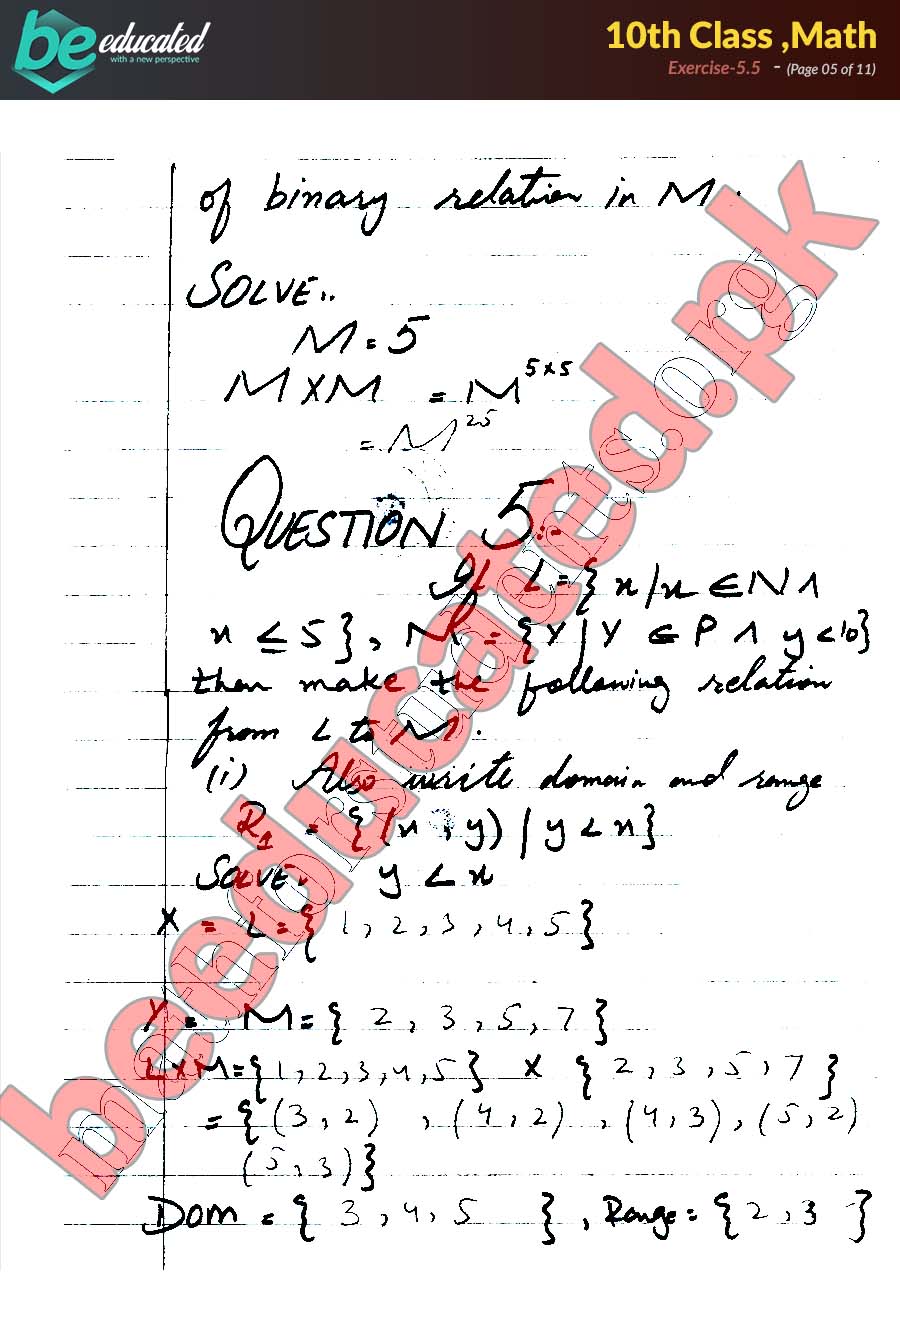 be educated
with a new perspective
10th Class ,Math
Exercise-5.5 - (Page 05 of 11)
of binary relation in M.
SOLVE..
M = 5
M X M = M^5x5
= M^25
QUESTION 5:-
If L = { x/x ∈ N ∧
x ≤ 5 } , M = { Y | Y ∈ P ∧ y < 10 }
then make the following relation
from L to M.
(i) Also write domain and range
R1 = { (x , y) | y < x }
SOLVE. y < x
X = L = { 1, 2, 3, 4, 5 }
Y = M = { 2 , 3 , 5 , 7 }
L x M = { 1, 2, 3, 4, 5 } X { 2 , 3 , 5 , 7 }
= { (3 , 2) , (4 , 2) , (4 , 3) , (5 , 2)
(5 , 3) }
DOM = { 3 , 4 , 5 } , Range = { 2 , 3 }
beeducated.pk